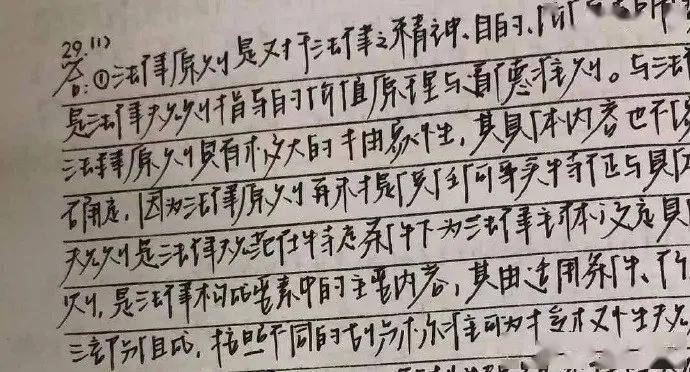 29.(1)
答:①法律原则是对于法律之来精神、目的、价
是法律规则指导的价值原理与道德准则。与法
法律原则具有极大的抽象性,其具体内容也不
确定,因为法律原则并未提供任何事实特征与具
规则是法律规范在特定条件下为法律主体设定具
则,是法律构成要素中的主要内容,其由适用条件、行
三部分组成,按照不同的划分标准可为